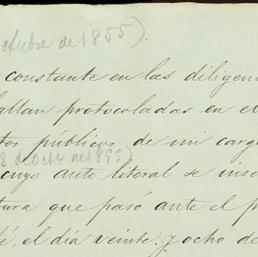 ctubre de 1855).
constante en las diligen
allan protocoladas en el
tos públicos de mi carg
(8 de Octe de 1855)
cuyo auto literal se inse
tura que pasó ante el p
é, el día veinte y ocho de